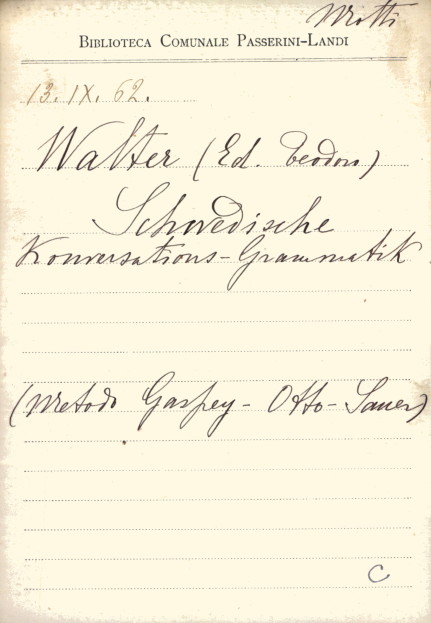 Motti
BIBLIOTECA COMUNALE PASSERINI-LANDI
13. IX. 62.
Walter (Ed. Teodoro)
Schwedische
Konversations-Grammatik
(Metodo Gaspey-Otto-Sauer)
C